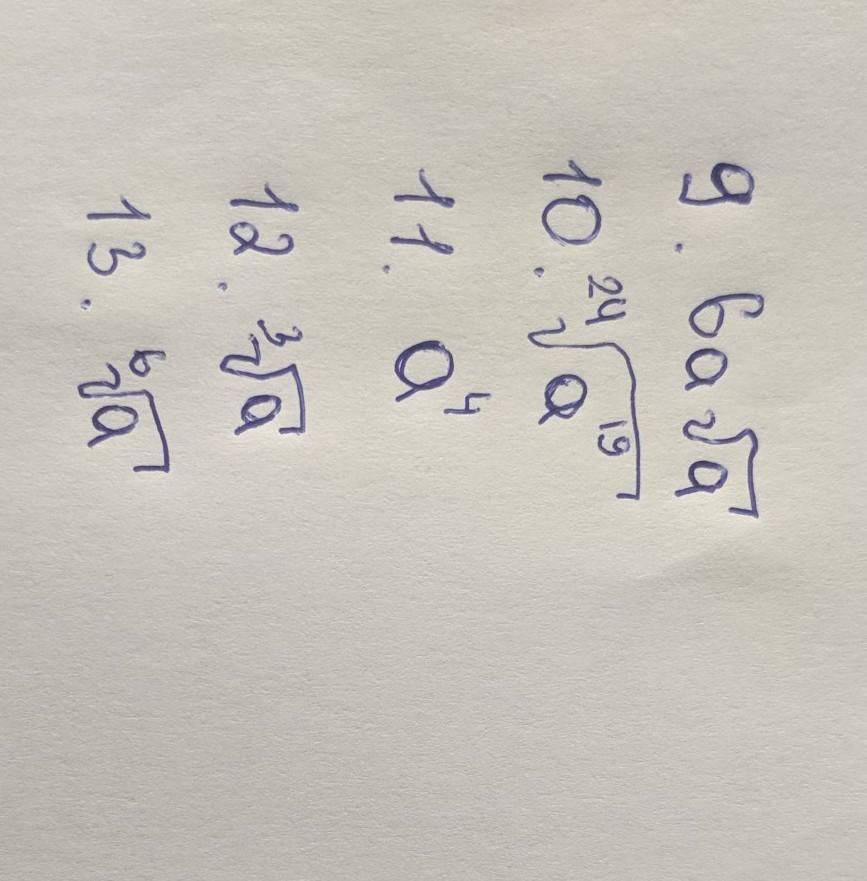 9. 6a√a
10. ²⁴√a¹⁹
11. a⁴
12. ³√a
13. ⁶√a